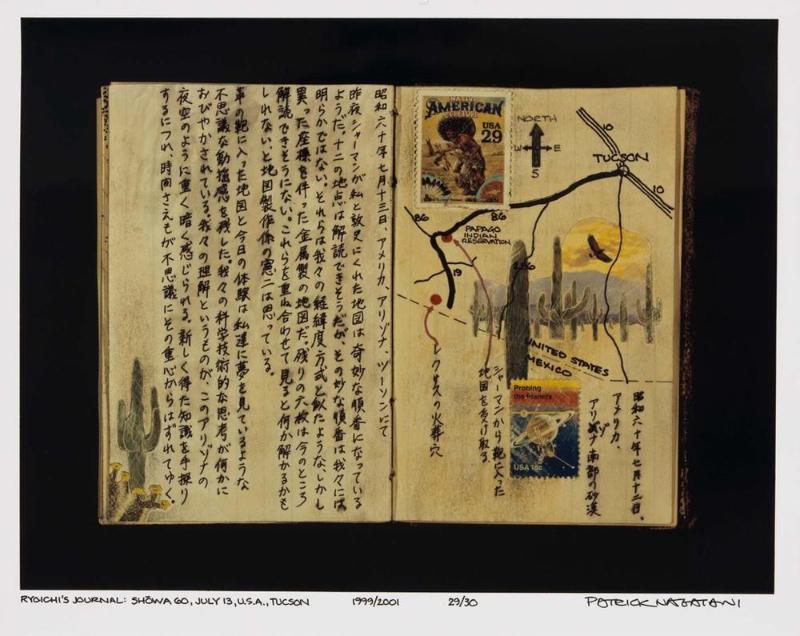 昭和六十年七月十二日、
アメリカ、
アリゾナ南部の砂漠
NATIVE
AMERICAN
USA
29
NORTH
W E
S
10
TUCSON
10
86
86
PAPAGO
INDIAN
RESERVATION
19
UNITED STATES
MEXICO
シャーマンから鞄に入った
地図を受け取る。
レクサスの火葬穴
Probing
the Planets
USA 15c
昭和六十年七月十三日、アメリカ、アリゾナ、ツーソンにて
昨夜シャーマンが私と敦史にくれた地図は奇妙な順番になっている
ようだ。十二の地点は解読できそうだが、その妙な順番は我々には
明らかではない。それらは我々の経緯度方式と似たような、しかし
異った座標を伴った金属製の地図だ。残りの六枚は今のところ
解読できそうにない。これらを重ね合わせて見ると何か解かるかも
しれない、と地図製作係の憲二は思っている。
革の鞄に入った地図と今日の体験は私達に夢を見ているような
不思議な動揺感を残した。我々の科学技術的な思考が何かに
おびやかされている。我々の理解というものが、このアリゾナの
夜空のように重く暗く感じられる。新しく得た知識を手探り
するにつれ、時間さえもが不思議にその重心からはずれてゆく。
RYOICHI'S JOURNAL: SHŌWA 60, JULY 13, U.S.A., TUCSON 1999/2001 29/30 PATRICK NAGATANI